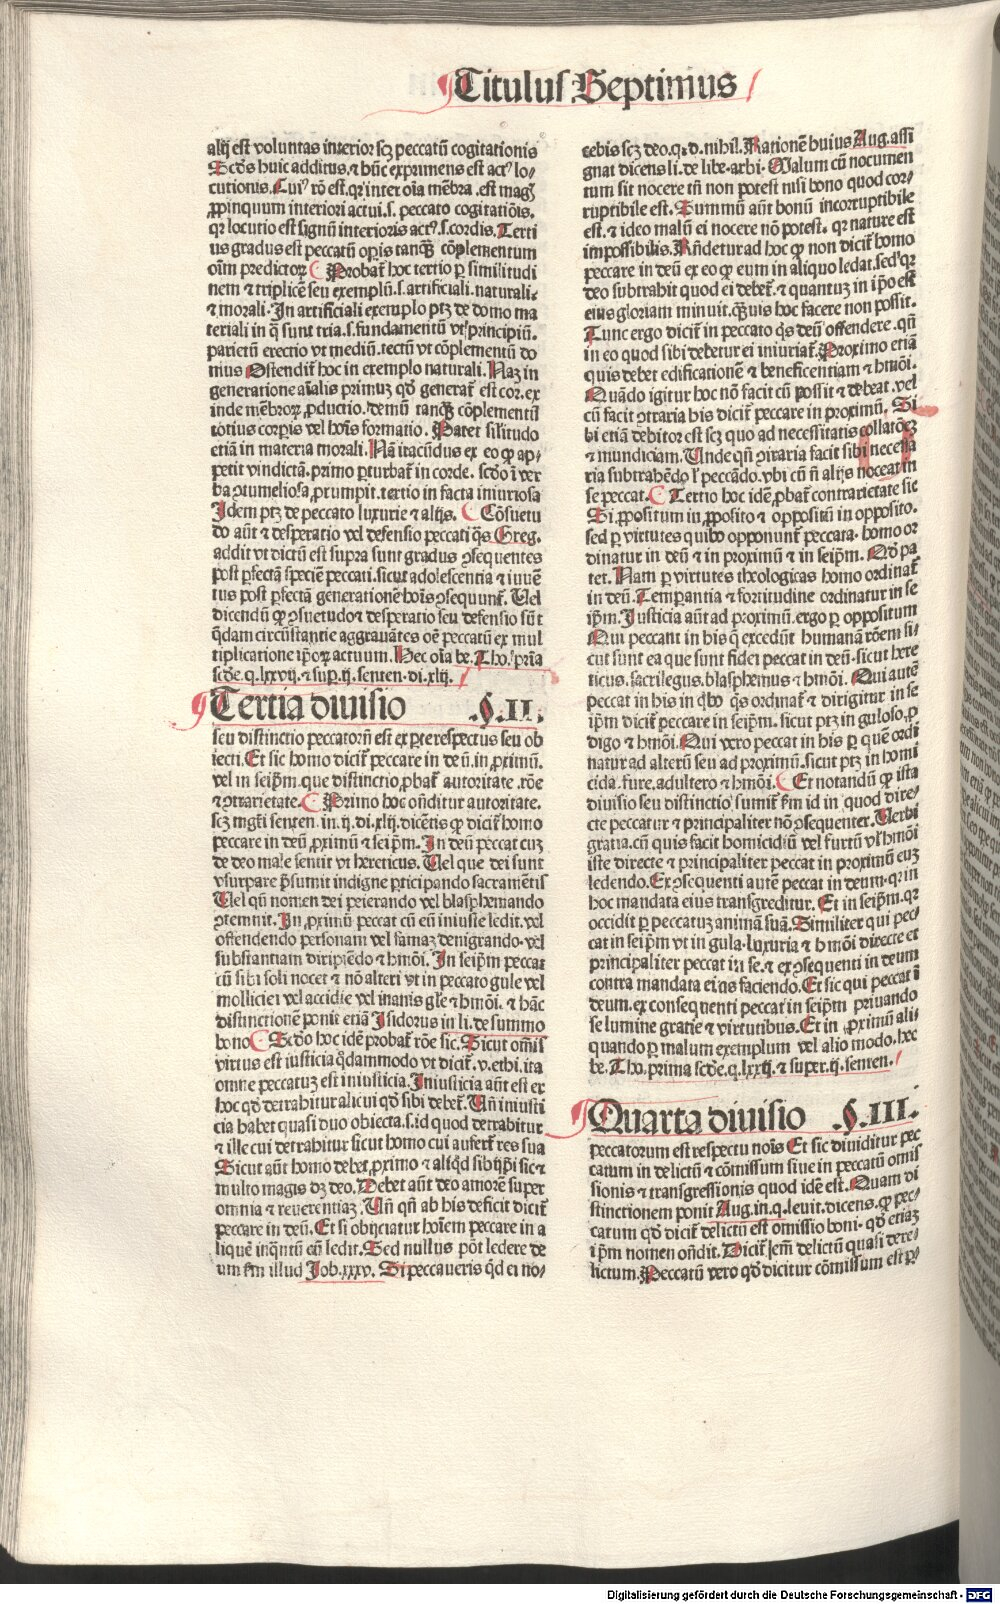 Titulus Septimus
alij est voluntas interior scꝫ peccatū cogitationis
Scd̄s huic additus ⁊ hūc exprimens est actꝰ lo/
cutionis. Cuiꝰ rō est. qꝛ inter oīa mēbra .est magꝭ
ꝓpinquum interiori actui .s. peccato cogitatiōis.
qꝛ locutio est signū interioris actꝰ .s. cordis. Terti
us gradus est peccatū oꝑis tanꝗ̄ cōplementum
oīm predictoꝝ. Probat̄ hoc tertio ꝑ similitudi
nem ⁊ triplicē seu exemplū .s. artificiali. naturali.
⁊ morali. In artificiali exemplo ptꝫ de domo ma
teriali in q̄ sunt tria .s. fundamentū vt principiū.
parietū erectio vt mediū. tectū vt cōplementū do
mus Ostendit̄ hoc in exemplo naturali. Naꝫ in
generatione aīalis primuꝫ qd̄ generat̄ est cor. ex
inde mēbroꝝ ꝓductio. demū tanꝗ̄ cōplementū
totius corꝑis vel hoīs formatio. Patet silitudo
etiā in materia morali. Nā iracūdus ex eo ꝙ ap/
petit vindictā. primo ꝑturbat̄ in corde. scd̄o ī ver
ba ꝯtumeliosa ꝓrumpit. tertio in facta iniuriosa
Idem ptꝫ de peccato luxurie ⁊ alijs. Cōsuetu
do aūt ⁊ desperatio vel defensio peccati q̄s Greg.
addit vt dictū est supra sunt gradus ꝯsequentes
post ꝑfectā speciē peccati. sicut adolescentia ⁊ iuuē
tus post ꝑfectā generationē hoīs ꝯsequunt̄. Vel
dicendū ꝙ ꝯsuetudo ⁊ desperatio seu defensio sūt
q̄dam circūstantie aggrauātes oē peccatū ex mul
tiplicatione ip̄oꝝ actuum. Hec oīa be. Tho. pria
scd̄e. q. lxxvij. ⁊ suꝑ .ij. senten. di. xlij.
Tertia diuisio .§. II.
seu distinctio peccatorū est ex ꝑte respectus seu ob
iecti. Et sic homo dicit̄ peccare in deū. in ꝓximū.
vel in seip̄m. que distinctio ꝓbat̄ autoritate. rōe
⁊ ꝯtrarietate. Primo hoc ondit̄ur autoritate.
scꝫ mgr̄i senten. in .ij. di. xlij. dicētis ꝙ dicit̄ homo
peccare in deū. ꝓximū ⁊ seip̄m. In deū peccat cuꝫ
de deo male sentit vt hereticus. Vel que dei sunt
vsurpare p̄sumit indigne ꝑticipando sacramētis
Vel qn̄ nomen dei peierando vel blasphemando
ꝯtemnit. In ꝓximū peccat cū eū iniuste ledit. vel
offendendo personam vel famaꝫ denigrando. vel
substantiam diripiēdo ⁊ hmōi. In seip̄m peccat
cū sibi soli nocet ⁊ nō alteri vt in peccato gule vel
molliciei vel accidie vel inanis gl̄e ⁊ hmōi. ⁊ hāc
distinctionē ponit etiā Isidorus in li. de summo
bono. Scd̄o hoc idē probat̄ rōe sic. Sicut omīs
virtus est iusticia q̄dammodo vt dicit̄ .v. ethi. ita
omne peccatuꝫ est iniusticia. Iniusticia aūt est ex
hoc qd̄ detrahitur alicui qd̄ sibi debet̄. Vn̄ iniusti
cia habet quasi duo obiecta .s. id quod detrahitur
⁊ ille cui detrahitur sicut homo cui aufert̄ res sua
Sicut aūt homo debet ꝓximo ⁊ aliqd̄ sibijp̄i sic ⁊
multo magis dꝫ deo. Debet aūt deo amorē super
omnia ⁊ reuerentiaꝫ. Vn̄ qn̄ ab his deficit dicit̄
peccare in deū. Et si obijciatur hoīem peccare in a
liquē inq̄ntū eū ledit. Sed nullus pōt ledere de
um s̄m illud Job. xxxv. Si peccaueris qd̄ ei no/
cebis scꝫ deo. q.d. nihil. Rationē huius Aug. assi
gnat dicens li. de libe. arbi. Malum cū nocumen
tum sit nocere tn̄ non potest nisi bono quod cor/
ruptibile est. Summū aūt bonū incorruptibile
est. ⁊ ideo malū ei nocere nō potest. qꝛ nature est
impossibilis. Rn̄detur ad hoc ꝙ non dicit̄ homo
peccare in deū ex eo ꝙ eum in aliquo ledat. sed qꝛ
deo subtrahit quod ei debet̄. ⁊ quantuꝫ in ip̄o est
eius gloriam minuit. ꝗ̄uis hoc facere non possit.
Tunc ergo dicit̄ in peccato q̄s deū offendere. qn̄
in eo quod sibi debetur ei iniuriat̄. Proximo etiā
quis debet edificationē ⁊ beneficentiam ⁊ hmōi.
Quādo igitur hoc nō facit cū possit ⁊ debeat. vel
cū facit ꝯtraria his dicit̄ peccare in proximū. Si
bi etiā debitor est scꝫ quo ad necessitatis collatōeꝫ
⁊ mundiciam. Unde qn̄ ꝯtraria facit sibi necessa
ria subtrahēdo vel peccādo. vbi cū n̄ alijs noceat in
se peccat. Tertio hoc idē ꝓbat̄ contrarietate sic
Si ꝓpositum in ꝓposito ⁊ oppositū in opposito.
sed ꝑ virtutes quibꝰ opponunt̄ peccata. homo or
dinatur in deū ⁊ in proximū ⁊ in seip̄m. Qd̄ pa
tet. Nam ꝑ virtutes theologicas homo ordinat̄
in deū. Temperantia ⁊ fortitudine ordinatur in se
ip̄m. Justicia aūt ad proximū. ergo ꝑ oppositum
Qui peccant in his q̄ excedūt humanā rōem si/
cut sunt ea que sunt fidei peccat in deū. sicut here
ticus. sacrilegus. blasphemus ⁊ hmōi. Qui autē
peccat in his in qbꝰ q̄s ordinat̄ ⁊ dirigitur in se
ip̄m dicit̄ peccare in seip̄m. sicut ptꝫ in guloso. ꝓ
digo ⁊ hmōi. Qui vero peccat in his ꝑ quē ordi
natur ad alterū seu ad proximū. sicut ptꝫ in homi
cida. fure. adultero ⁊ hmōi. Et notandū ꝙ ista
diuisio seu distinctio sumit̄ s̄m id in quod dire/
cte peccatur ⁊ principaliter nō ꝯsequenter. Verbi
gratia. cū quis facit homicidiū vel furtū vl̄ hmōi
iste directe ⁊ principaliter peccat in proximū euꝫ
ledendo. Ex ꝯsequenti autē peccat in deum. qꝛ in
hoc mandata eius transgreditur. Et in seip̄m. qꝛ
occidit ꝑ peccatuꝫ animā suā. Similiter qui pec/
cat in seip̄m vt in gula. luxuria ⁊ hmōi directe et
principaliter peccat in se. ⁊ ex ꝯsequenti in deum
contra mandata eius faciendo. Et sic qui peccat ī
deum. ex consequenti peccat in seip̄m priuando
se lumine gratie ⁊ virtutibus. Et in ꝓximū ali/
quando ꝑ malum exemplum vel alio modo. hec
be. Tho. prima scd̄e. q. lxxij. ⁊ super .ij. senten.
Quarta diuisio .§. III.
peccatorum est respectu noīs Et sic diuiditur pec
catum in delictū ⁊ cōmissum siue in peccatū omis
sionis ⁊ transgressionis quod idē est. Quam di
stinctionem ponit Aug. in. q. leuit. dicens. ꝙ pec/
catum qd̄ dicit̄ delictū est omissio boni. qd̄ etiaꝫ
ip̄m nomen on̄dit. Dicit̄ em̄ delictū quasi dere/
lictum. Peccatū vero qd̄ dicitur cōmissum est ꝑ/
Digitalisierung gefördert durch die Deutsche Forschungsgemeinschaft - DFG